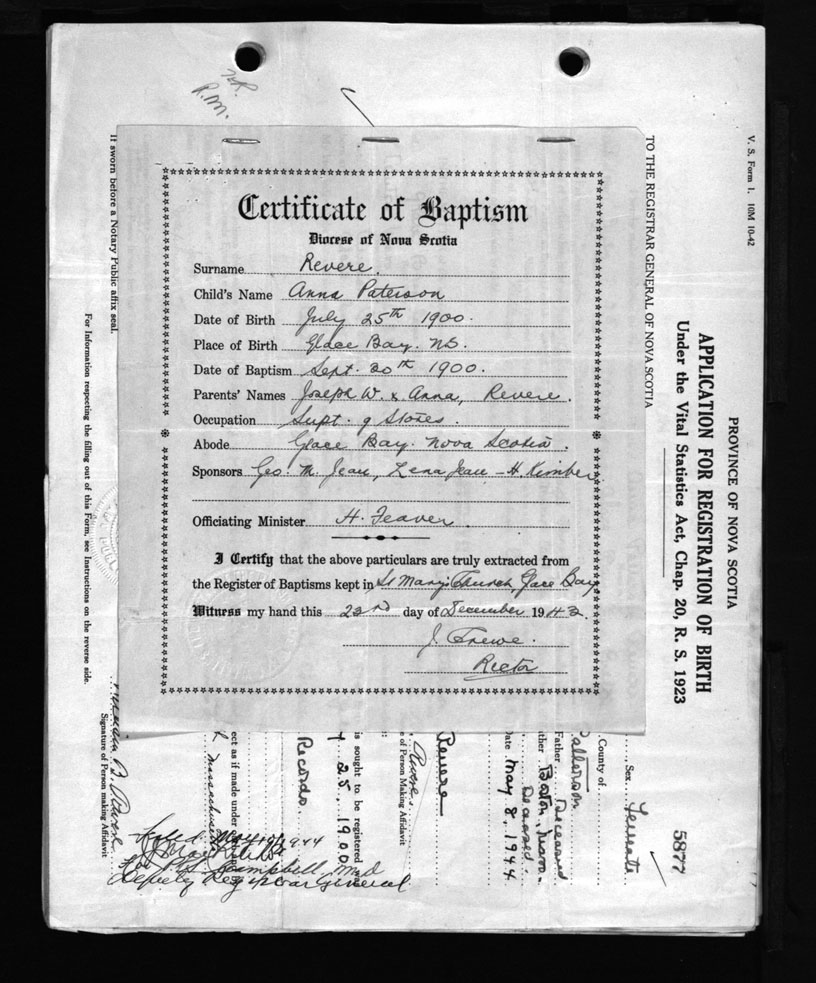 H.R.
R.M.
Certificate of Baptism
Diocese of Nova Scotia
Surname Revere.
Child's Name Anna Paterson
Date of Birth July 25th 1900.
Place of Birth Glace Bay. NS.
Date of Baptism Sept. 20th 1900.
Parents' Names Joseph W. & Anna, Revere.
Occupation Supt. of Stores.
Abode Glace Bay. Nova Scotia.
Sponsors Geo. M. Jean, Lena Jean - H. Kimber
Officiating Minister H. Feaver.
I Certify that the above particulars are truly extracted from
the Register of Baptisms kept in St Mary's Church, Glace Bay
Witness my hand this 22nd day of December 1943.
J. Frewe.
Rector
V. S. Form 1. 10M 10-42
PROVINCE OF NOVA SCOTIA
APPLICATION FOR REGISTRATION OF BIRTH
Under the Vital Statistics Act, Chap. 20, R. S. 1923
TO THE REGISTRAR GENERAL OF NOVA SCOTIA
5877
Sex Female
County of
Patterson
Father Deceased
ther Boston, Mass.
Deceased.
Date May 8, 1944
Revere
e of Person Making Affidavit
is sought to be registered
25, 1900
Records
ect as if made under
Massachusetts
Signature of Person making Affidavit
If sworn before a Notary Public affix seal.
For Information respecting the filling out of this Form, see Instructions on the reverse side.
Campbell, M.D
Deputy Registrar General